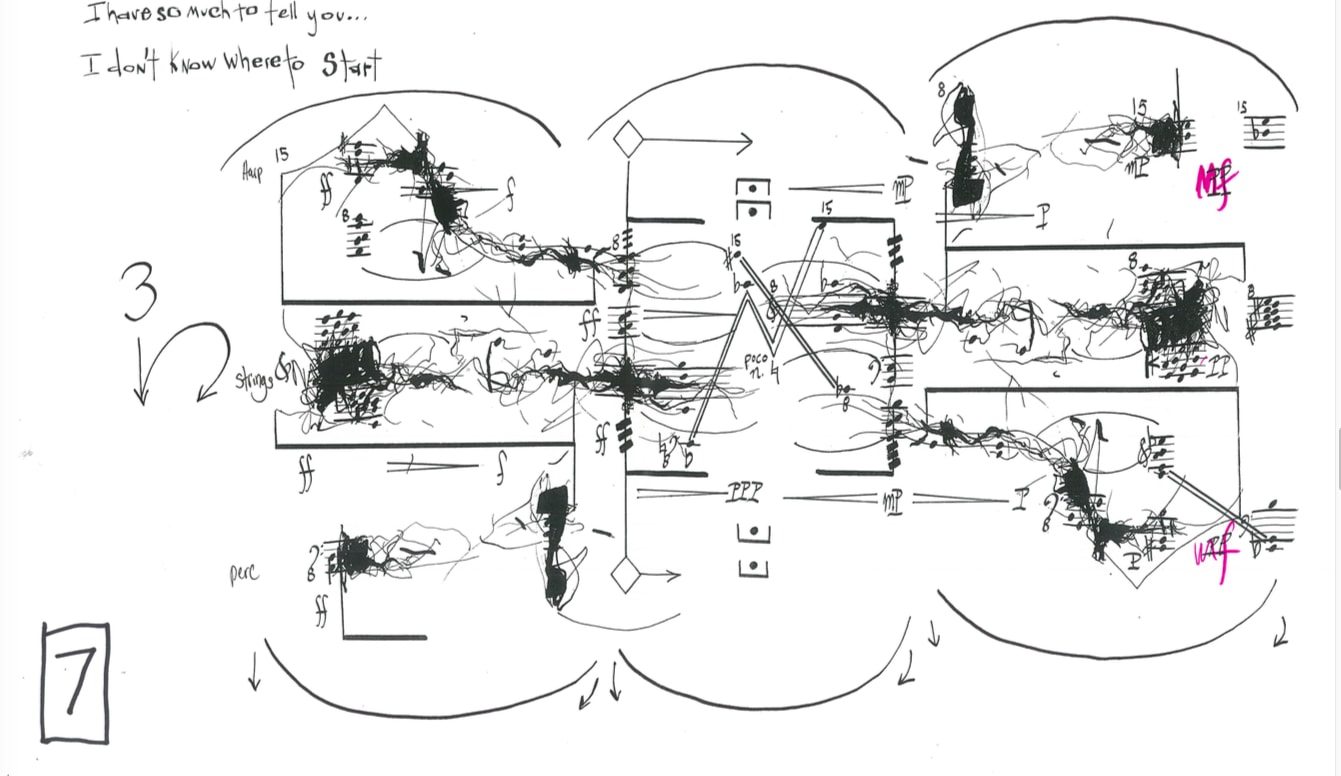 I have so much to tell you...
I don't know where to start
8
15
15
15
Harp
15
ff
f
mP
mP
Mf
8
15
P
8
15
8
8
8
3
ff
poco
n.
Strings
PP
ff
8
ff
f
PPP
mP
P
8
P
mf
perc
8
ff
7